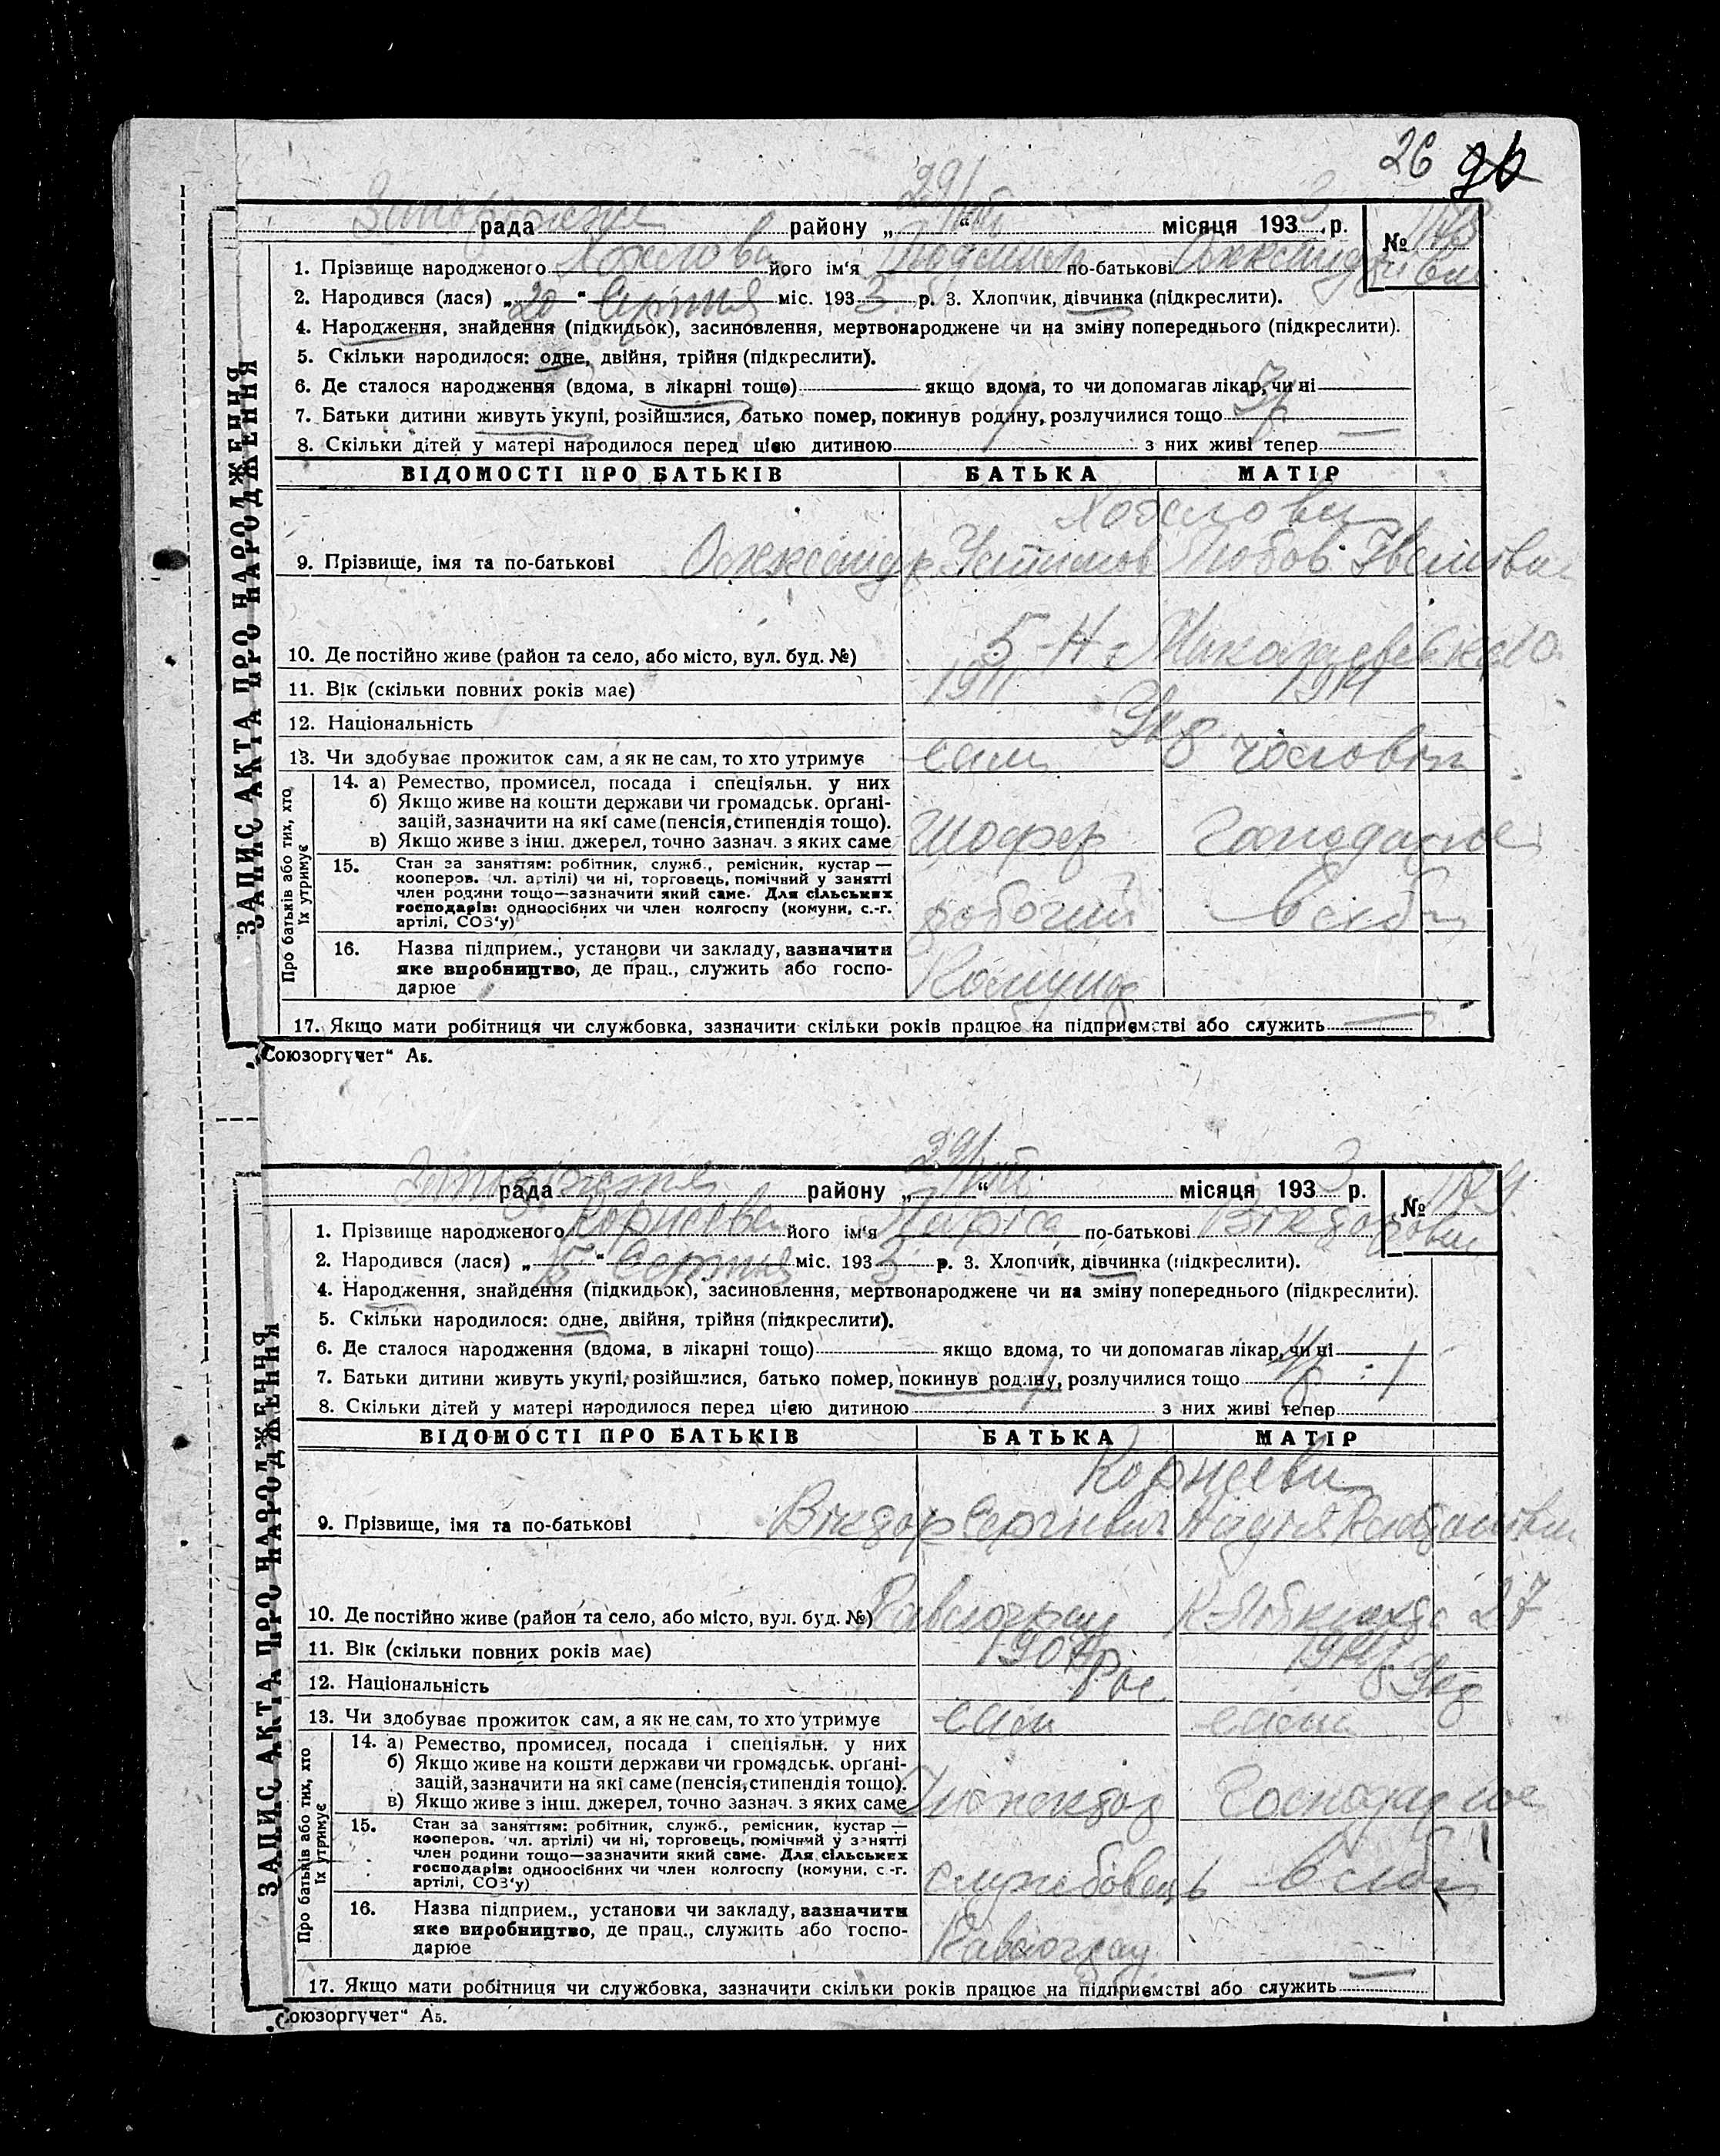 26
29/VIII 3
Запоріжжя рада району „ “ місяця 193 р. №
1. Прізвище народженого його ім‘я Людмила по-батькові Олександрівна
2. Народився (лася) „20“ Серпня міс. 1933 р. 3. Хлопчик, дівчинка (підкреслити).
4. Народження, знайдення (підкидьок), засиновлення, мертвонароджене чи на зміну попереднього (підкреслити).
5. Скільки народилося: одне, двійня, трійня (підкреслити).
6. Де сталося народження (вдома, в лікарні тощо) якщо вдома, то чи допомагав лікар, чи ні
7. Батьки дитини живуть укупі, розійшлися, батько помер, покинув родину, розлучилися тощо
8. Скільки дітей у матері народилося перед цією дитиною 1 з них живі тепер —
ЗАПИС АКТА ПРО НАРОДЖЕННЯ
ВІДОМОСТІ ПРО БАТЬКІВ БАТЬКА МАТІР
9. Прізвище, імя та по-батькові Олександр Любов Іванівна
10. Де постійно живе (район та село, або місто, вул. буд. №)
11. Вік (скільки повних років має) 1911 1914
12. Національність Укр
13. Чи здобуває прожиток сам, а як не сам, то хто утримує сам чоловік
Про батьків або тих, хто їх утримує
14. а) Ремество, промисел, посада і спеціяльн. у них
б) Якщо живе на кошти держави чи громадськ. органі-
зацій, зазначити на які саме (пенсія, стипендія тощо).
в) Якщо живе з інш. джерел, точно зазнач. з яких саме Шофер Господарює
15. Стан за заняттям: робітник, служб., ремісник, кустар —
кооперов. чл. артілі) чи ні, торговець, помічний у занятті
член родини тощо—зазначити який саме. Для сільських
господарів: одноосібних чи член колгоспу (комуни, с.-г.
артілі, СОЗ‘у) робочий в себе
16. Назва підприєм., установи чи закладу, зазначити
яке виробництво, де прац., служить або госпо-
дарює Комунар
17. Якщо мати робітниця чи службовка, зазначити скільки років працює на підприємстві або служить —
„Союзоргучет“ Аб.
29/VIII 3
Запоріжжя рада району „ “ місяця 193 р. №
1. Прізвище народженого Корнєєва його ім‘я Лариса по-батькові Вікторовна
2. Народився (лася) „15“ Серпня міс. 1933 р. 3. Хлопчик, дівчинка (підкреслити).
4. Народження, знайдення (підкидьок), засиновлення, мертвонароджене чи на зміну попереднього (підкреслити).
5. Скільки народилося: одне, двійня, трійня (підкреслити).
6. Де сталося народження (вдома, в лікарні тощо) якщо вдома, то чи допомагав лікар, чи ні
7. Батьки дитини живуть укупі, розійшлися, батько помер, покинув родину, розлучилися тощо
8. Скільки дітей у матері народилося перед цією дитиною 1 з них живі тепер
ЗАПИС АКТА ПРО НАРОДЖЕННЯ
ВІДОМОСТІ ПРО БАТЬКІВ БАТЬКА МАТІР
Корнєєви
9. Прізвище, імя та по-батькові Віктор Сергієвич Надія
10. Де постійно живе (район та село, або місто, вул. буд. №) Павлоград К-Лібкнехта 27
11. Вік (скільки повних років має)
12. Національність Рос Укр
13. Чи здобуває прожиток сам, а як не сам, то хто утримує сам сама
Про батьків або тих, хто їх утримує
14. а) Ремество, промисел, посада і спеціяльн. у них
б) Якщо живе на кошти держави чи громадськ. органі-
зацій, зазначити на які саме (пенсія, стипендія тощо).
в) Якщо живе з інш. джерел, точно зазнач. з яких саме Інспектор Господарює
15. Стан за заняттям: робітник, служб., ремісник, кустар —
кооперов. чл. артілі) чи ні, торговець, помічний у занятті
член родини тощо—зазначити який саме. Для сільських
господарів: одноосібних чи член колгоспу (комуни, с.-г.
артілі, СОЗ‘у) службовець в себе
16. Назва підприєм., установи чи закладу, зазначити
яке виробництво, де прац., служить або госпо-
дарює Павлоград
17. Якщо мати робітниця чи службовка, зазначити скільки років працює на підприємстві або служить —
„Союзоргучет“ Аб.